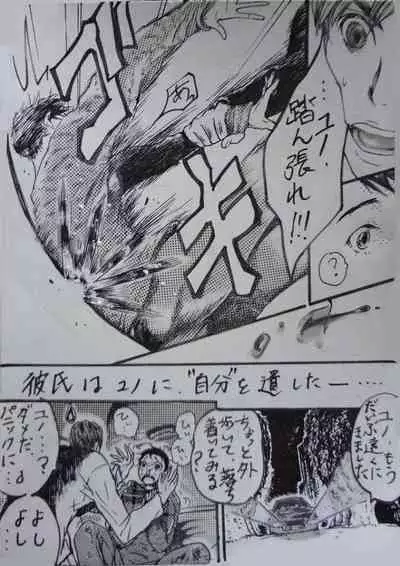 …ユノ、
踏ん張れ!!!
あっ
グキ
?
彼氏はユノに、"自分"を道したー……
ユノ、もう
だいぶ遠くに
きました
ちょっと外
歩いて、落ち
着いてみる
?
ユノ…?
ダメだ、
パニックに…
よし
よし…